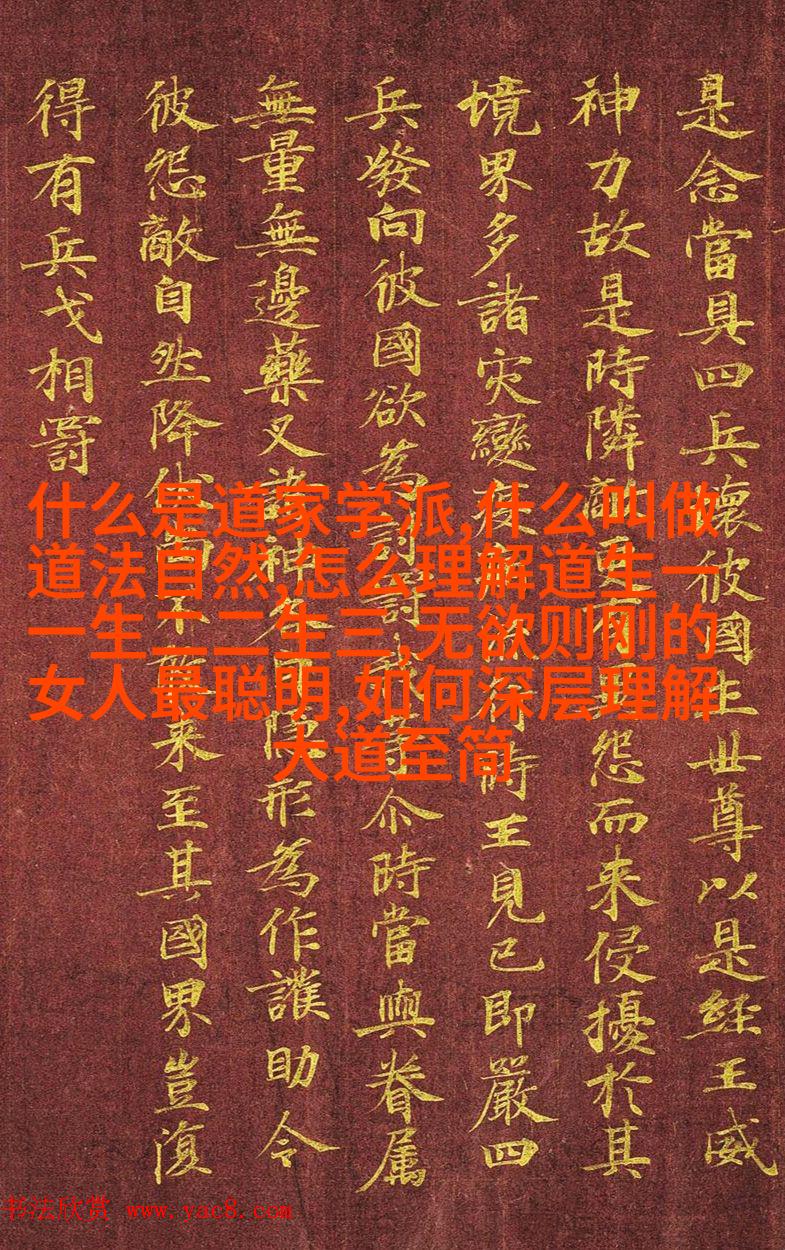 是念當具四兵壞彼國土世尊以是經王威
神力故是時隣敵更有怨而来侵擾於其
境界多諸灾變疫時王見已即嚴四
兵發向彼國欲為討罰我等尒時當與眷属
無量無邊藥叉諸神各自隱形為作護助令
彼怨敵自然降伏尚不敢来至其國界豈復
得有兵戈相罰
什么是道家学派,什么叫做
道法自然,怎么理解道生一
一生二二生三,无欲则刚的
女人最聪明,如何深层理解
大道至简
书法欣赏 www.yac8.com